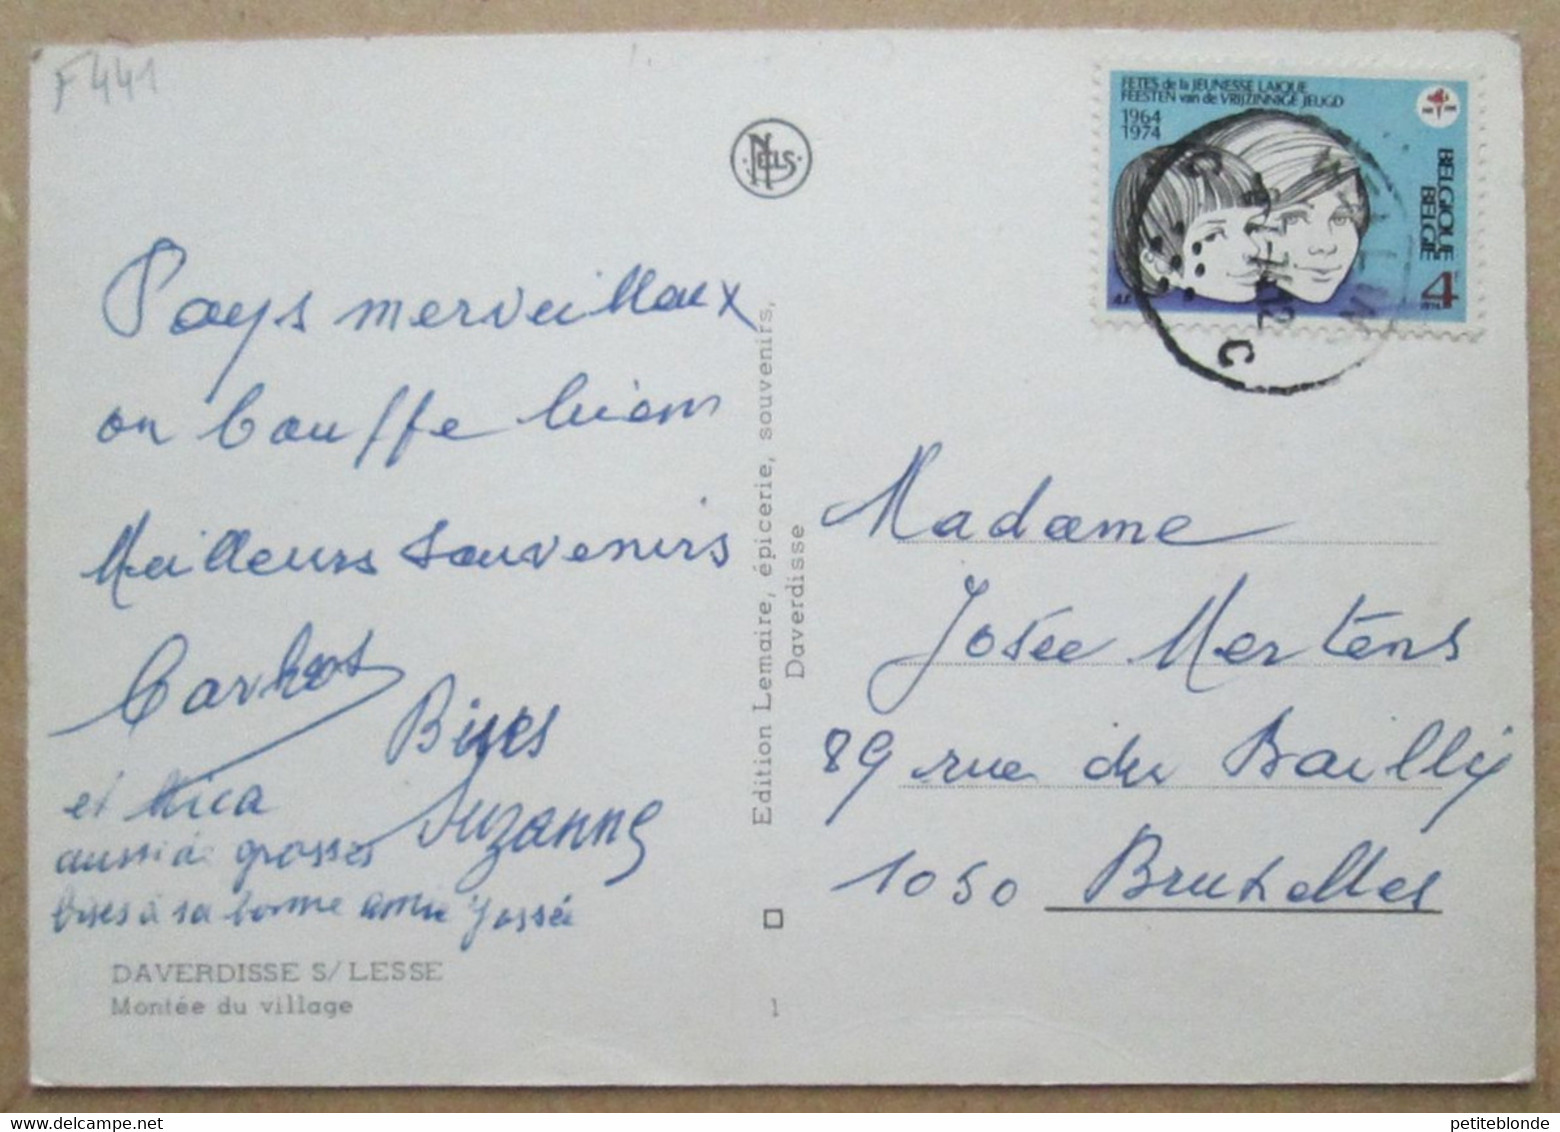 F441
NELS
Pays merveillaux
on bouffe bien
Meilleurs souvenirs
Bises
Suzanne
et Mica
aussi de grosses
bises à sa bonne amie Jossée
DAVERDISSE S/LESSE
Montée du village
Edition Lemaire, épicerie, souvenirs,
Daverdisse
1
FETES de la JEUNESSE LAIQUE
FEESTEN van de VRIJZINNIGE JEUGD
1964
1974
BELGIQUE
BELGIE
4F
C
WELLIN
C
Madame
Josée Mertens
89 rue du Bailly
1050 Bruxelles
petiteblonde